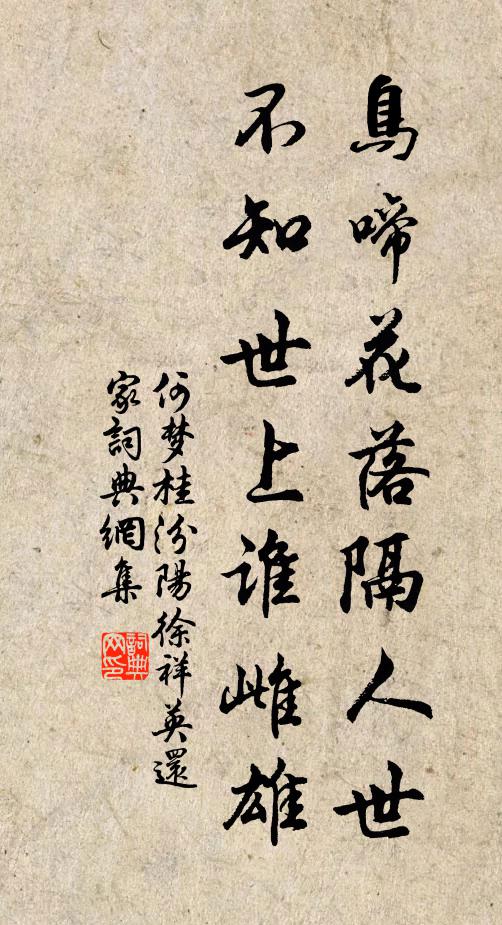 鳥啼花落隔人世
不知世上谁雌雄
何梦桂汾陽徐祥英還
家詞典網集
詞典网印